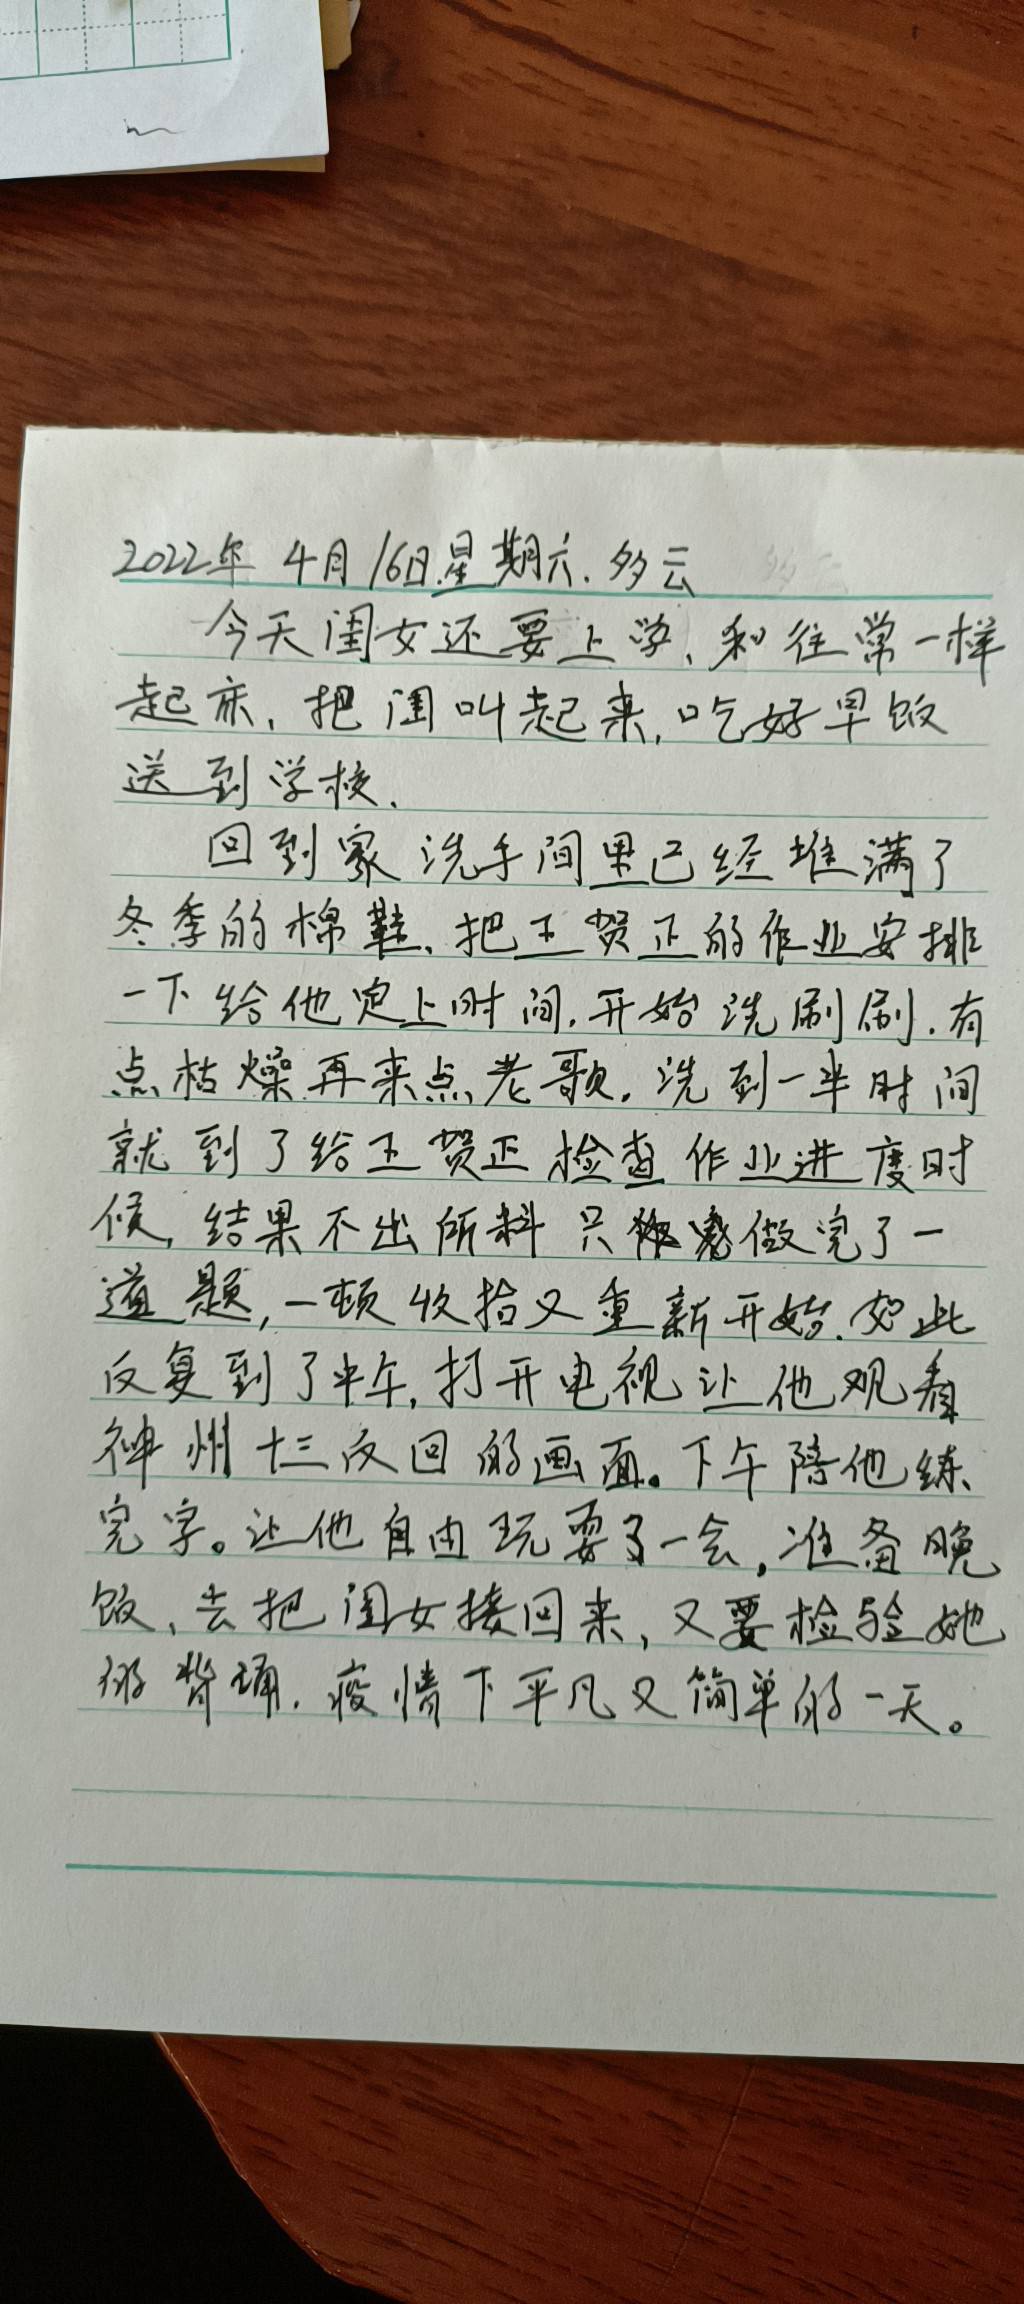 2022年 4月16日.星期六.多云
今天闺女还要上学、和往常一样
起床、把闺叫起来,吃好早饭
送到学校.
回到家洗手间里已经堆满了
冬季的棉鞋、把王贺正的作业安排
一下给他定上时间.开始洗刷刷.有
点枯燥再来点老歌.洗到一半时间
就到了给王贺正检查作业进度时
候,结果不出所料只做完了一
道题,一顿收拾又重新开始.如此
反复到了中午,打开电视让他观看
神州十三反回的画面。下午陪他练
完字。让他自由玩耍了一会,准备晚
饭、去把闺女接回来,又要检验她
的背诵.疫情下平凡又简单的一天。